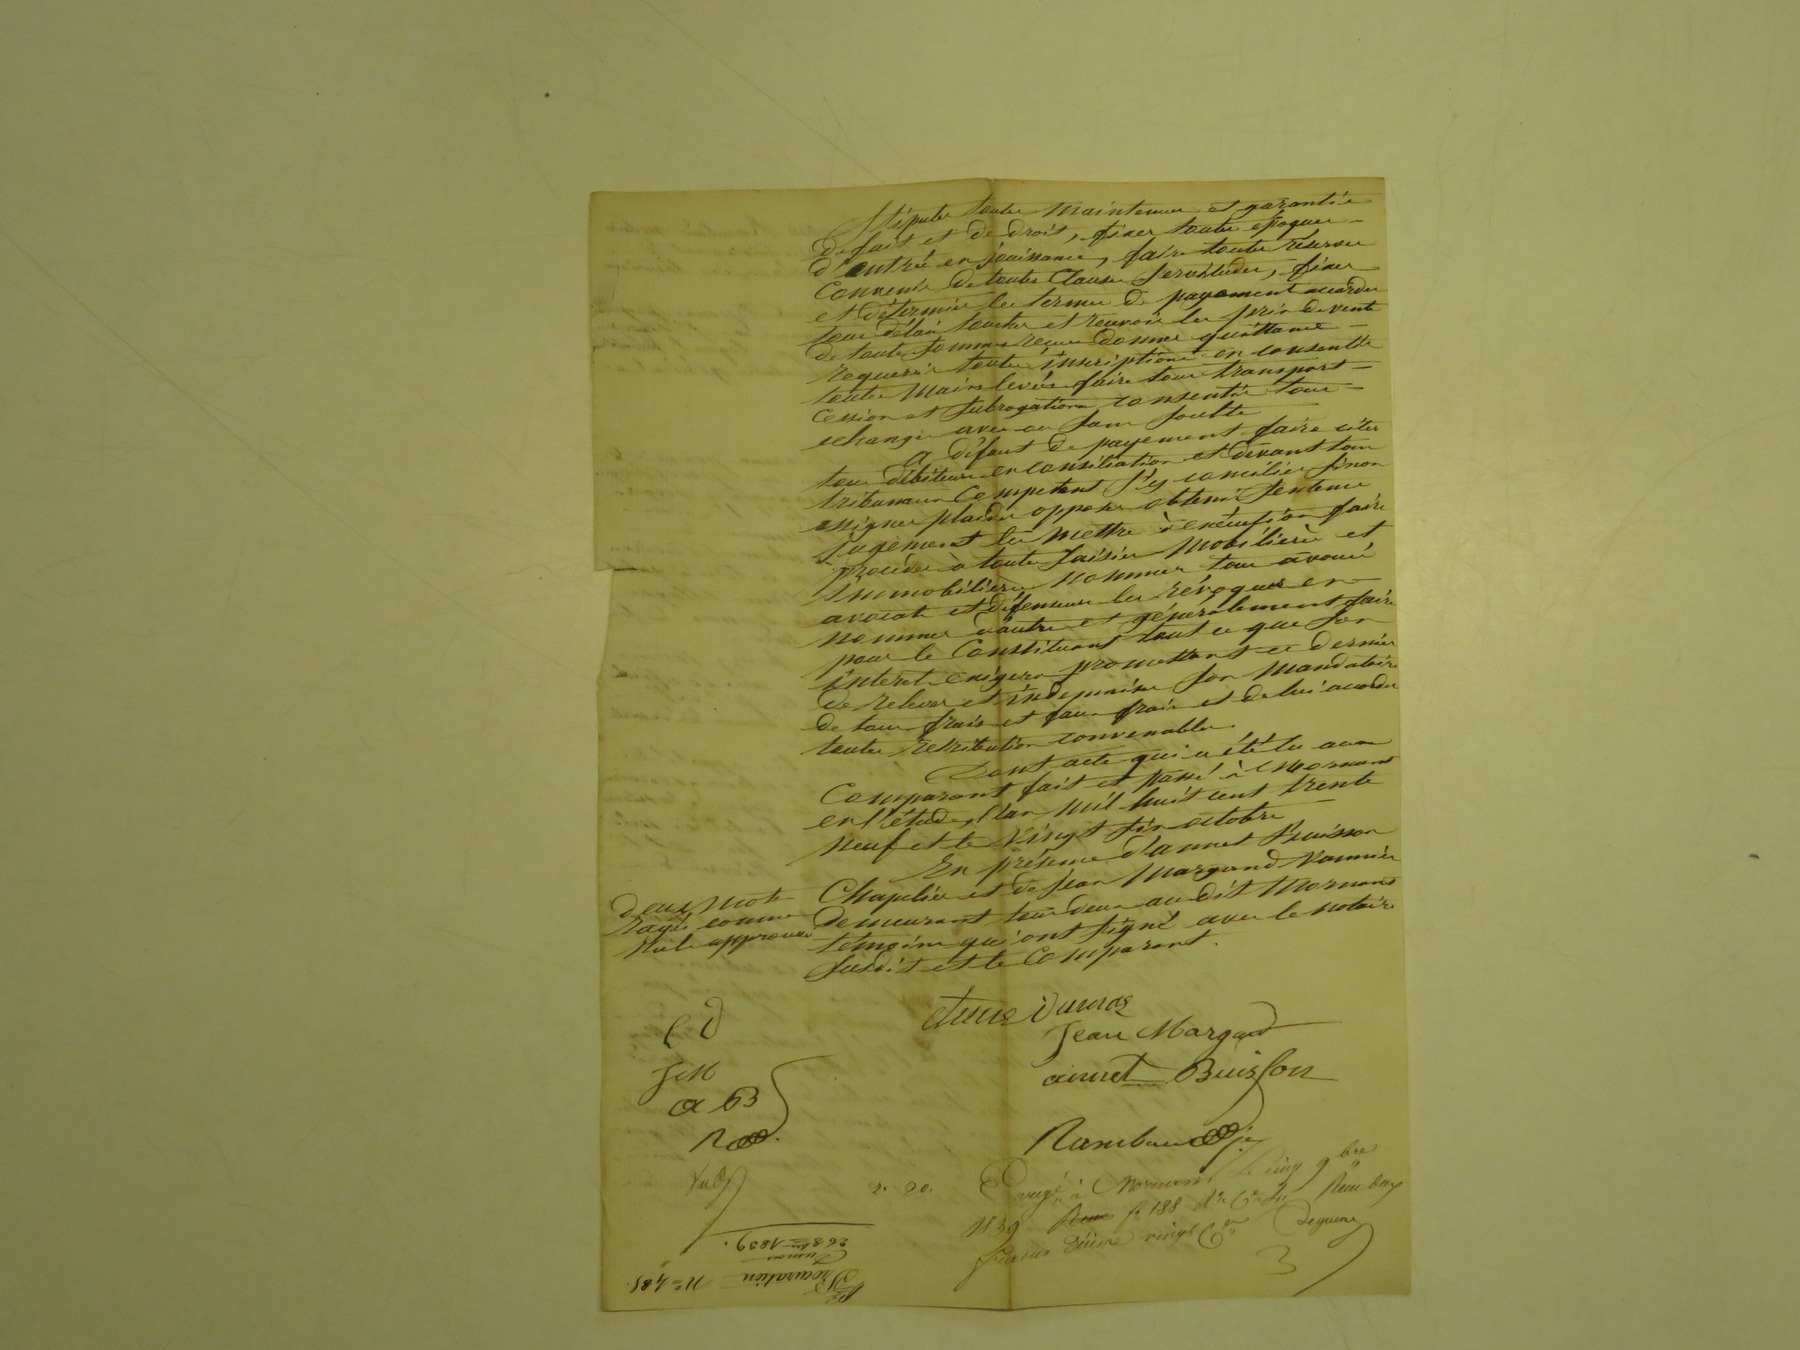 Stipuler toutes maintenues et garanties
de fait et de droit, fixer toutes époques
d'entrée en jouissance, faire toutes réserves
Convenir de toutes Clauses servitudes, fixer
et déterminer les termes de payement accorder
tous délais toucher et recevoir les prix de vente
de toutes sommes reçues donner quittances
requerir toutes inscriptions en consentir
toutes Mains levées faire tous transports
Cession et subrogations consentir tous
echanges avec ou sans soulte
A défaut de payement faire citer
tous débiteurs en conciliation et devant tous
tribunaux Competent s'y concilier sinon
assigner plaider opposer obtenir sentence
Jugement les mettre à exécution faire
procéder à toutes saisies Mobilières et
Immobilières nommer tous avoués
avocats et défenseurs les révoquer en
nommer d'autres et généralement faire
pour le Constituant tout ce que son
intérêt exigera promettant ce dernier
de relever et indemniser son Mandataire
de tous frais et faux frais et de lui accorder
toutes rétribution convenable.
Dont acte qui a été lu aux
Comparant fait et passé à Mornant
en l'étude, l'an Mil huit cent trente
neuf et le vingt six octobre
En présence d'annet Buisson
Chapelier et de Jean Margand Vannier
demeurant tous deux au dit Mornant
témoins qui ont signé avec le notaire
susdit et le Comparant.
Deux mots
rayés comme
nuls approuvés
Dumas
Jean Margand
annet Buisson
Rambaud
E D
J M
a B
R
2. 20.
Enregé à Mornant le cinq 9bre
1839 f° 188 Reçu deux
francs dixme vingt Cmes
N° 485.
Procuration
Dumas
26 8bre 1839.